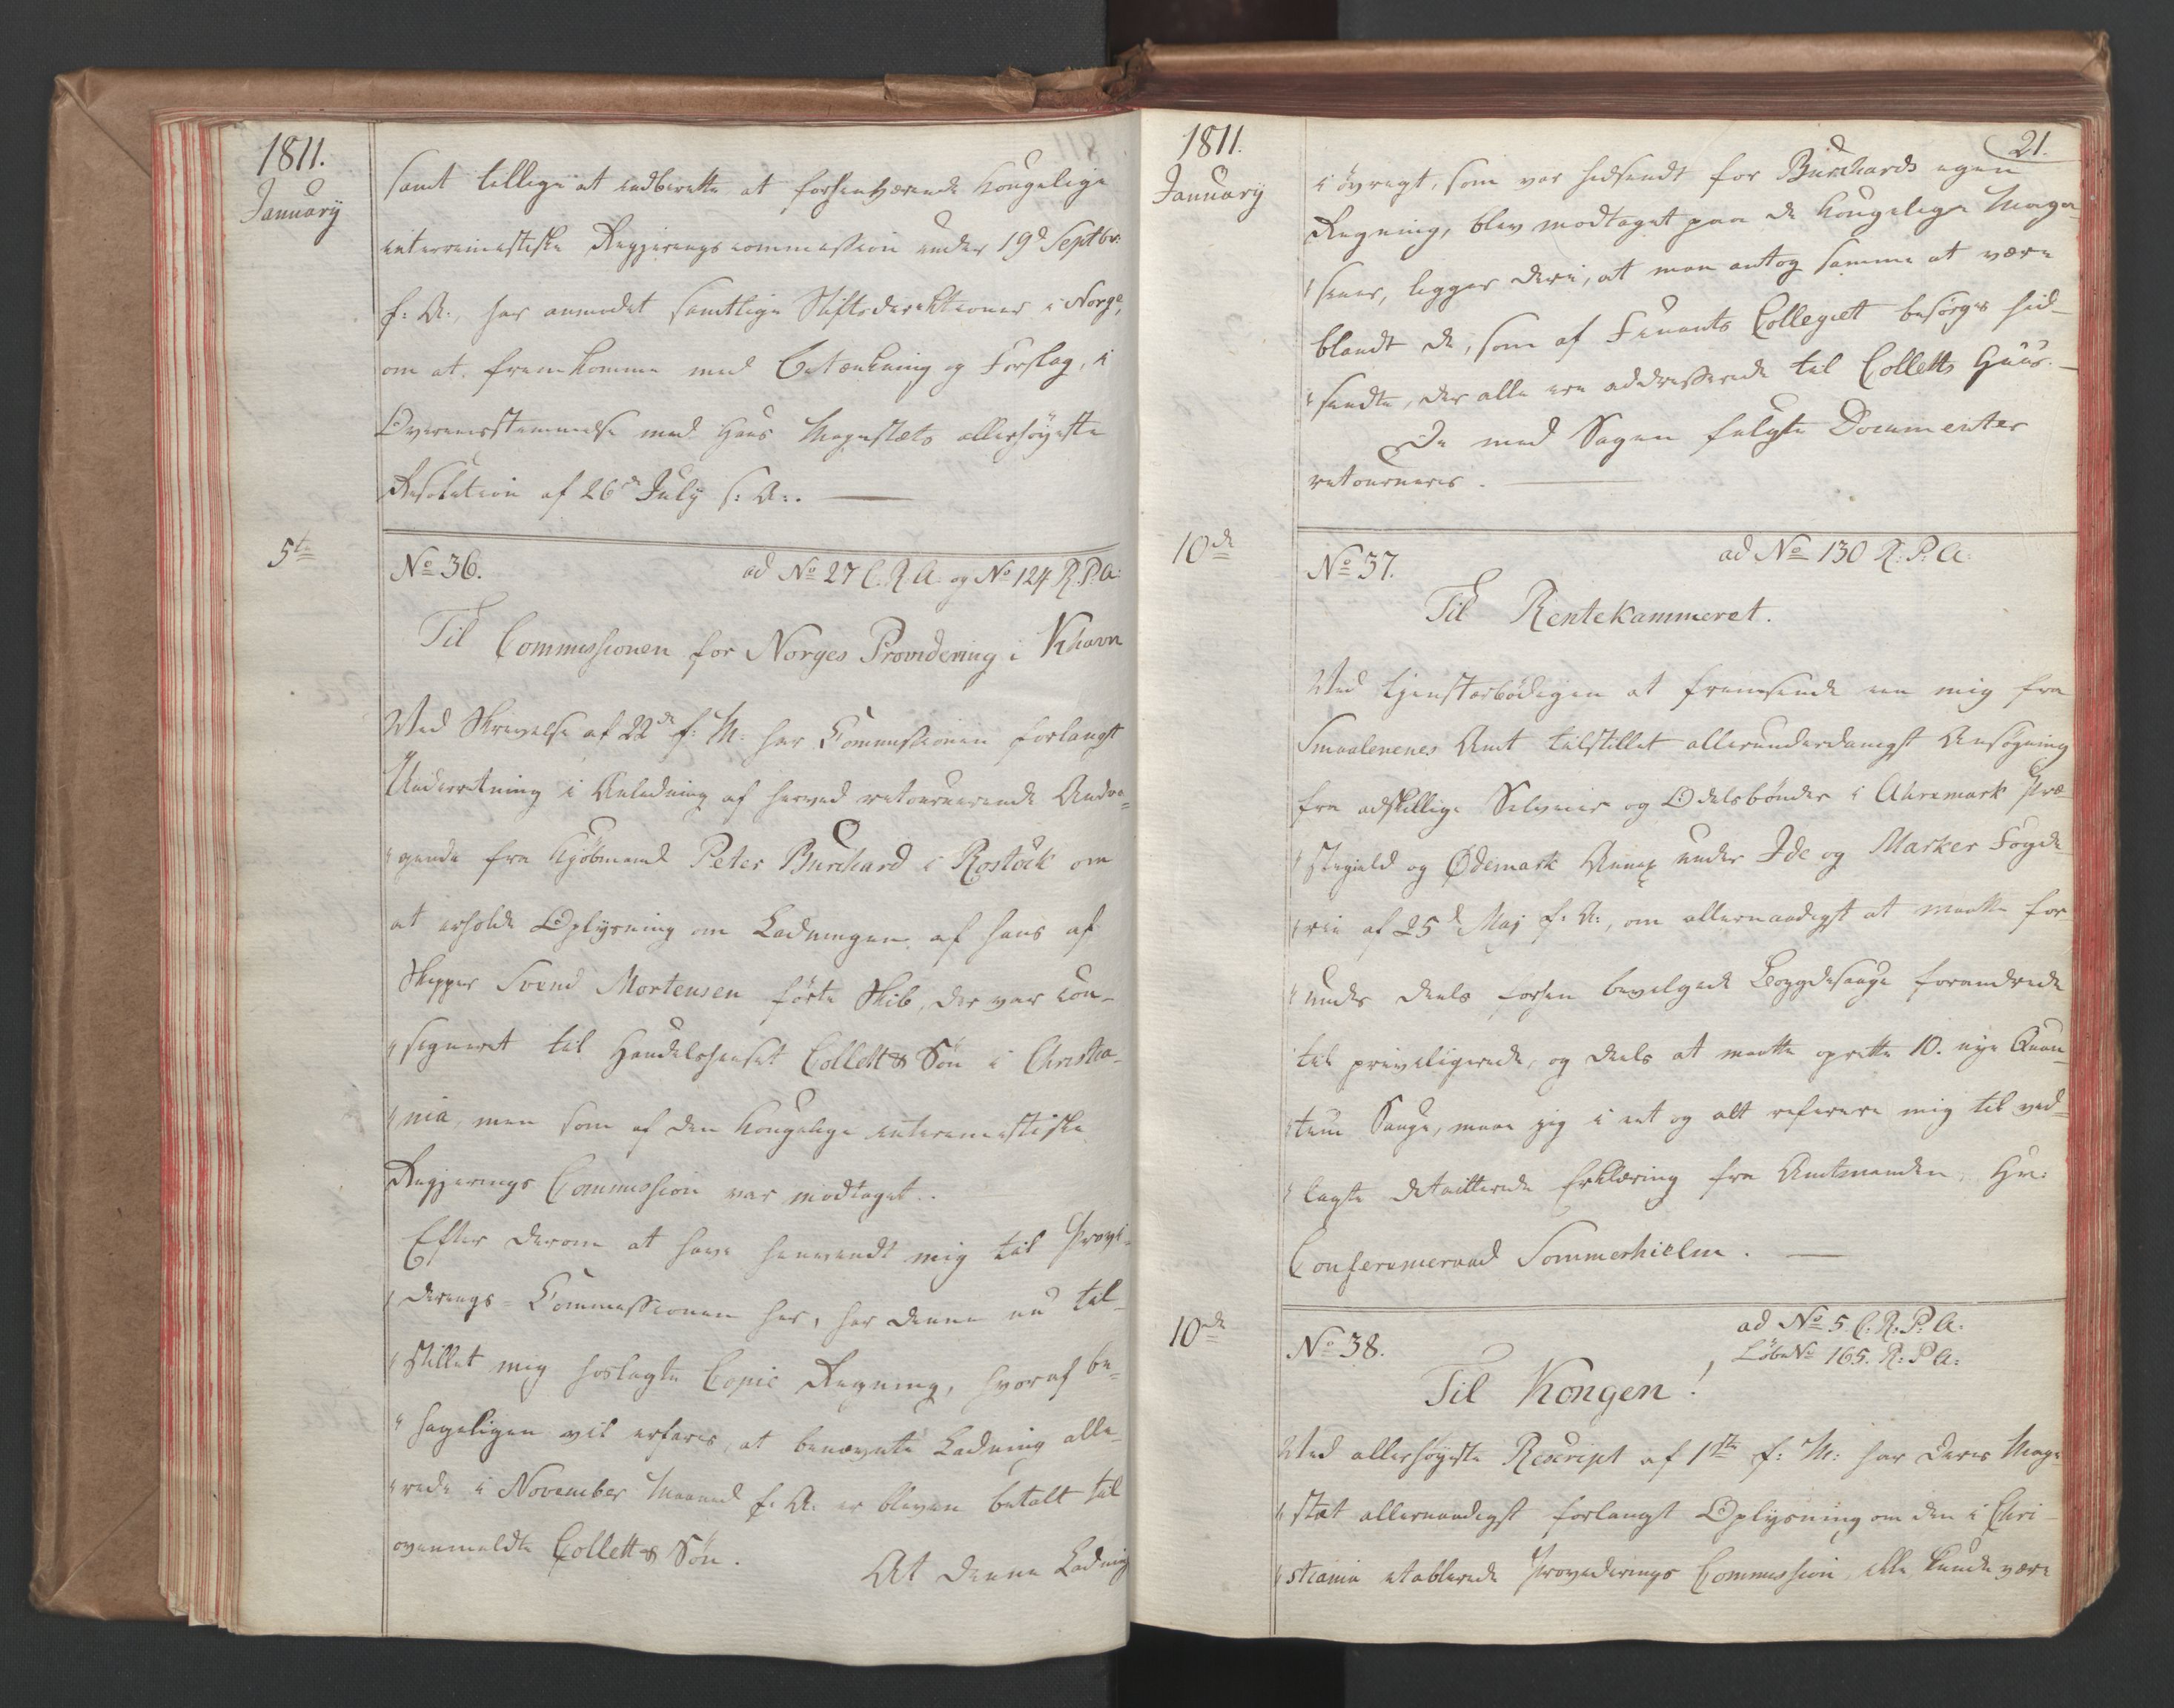 1811.
January
samt tillige at indberette at forhenværende Kongelige
interimistiske Regjeringscommission under 19d Septbr:
f: A:, har anmodet samtlige Stiftsdirektioner i Norge,
om at fremkomme med Betænkning og Forslag, i
Overensstemmelse med Hans Majestæts allerhøyeste
Resolution af 26de July s: A:.
5te
No 36.
ad No 27 C. R. A. og No 124 R. P. A:
Til Commissionen for Norges Providering i Khavn
Ved Skrivelse af 22de f: M: har Commissionen forlangt
Underretning i Anledning af herved retournerende Andra-
"gende fra Kjøbmand Peter Burchard i Rostock om
at erholde Oplysning om Ladningen af hans af
Skipper Svend Mortensen førte Skib, der var con-
"signeret til Handelshuset Collett & Søn i Christia-
"nia, men som af den Kongelige interimistiske
Regjerings Commission var modtaget.
Efter derom at have henvendt mig til Provi-
"derings-Commissionen her, har denne nu til-
"stillet mig hoslagte Copie Regning, hvoraf be-
"hageligen vil erfares, at benævnte Ladning alle-
"rede i November Maaned f. A. er bleven betalt til
ovenmeldte Collett & Søn.
At denne Ladning
1811.
January
21.
i øvrigt, som var hidsendt for Burchards egen
Regning, blev modtaget paa de Kongelige Maga-
"siner, ligger deri, at man antog samme at være
blandt de, som af Finants Collegiet besørges hid-
"sendte, der alle ere addresserede til Colletts Huus.
De med Sagen fulgte Documenter
retourneres.
10de
No 37.
ad No 130 R: P: A:
Til Rentekammeret.
Ved tjenstærbødigen at fremsende en mig fra
Smaalenenes Amt tilstillet allerunderdanigst Ansøgning
fra adskillige Selveier og Odelsbønder i Aremark Præ-
"stegield og Ødemark Annex under Ide og Marker Fogde-
"rie af 25d Maj f: A:, om allernaadigst at maatte for-
"undes deels forhen bevilgede Bøygdesauge forandrede
til priviligerede, og deels at maatte oprette 10. nye Quan-
"tum Sauge, maae jeg i eet og alt referere mig til ved-
"lagte detaillerede Erklæring fra Amtmanden, Hr:
Conferenceraad Sommerhielm.
10de
No 38.
ad No 5 C: R: P: A:
LøbeNo 165. R: P A:
Til Kongen!
Ved allerhøyeste Rescript af 1ste f: M: har Deres Maje-
"stæt allernaadigst forlangt Oplysning om den i Chri-
"stiania etablerede Providerings Commission, ikke kunde være